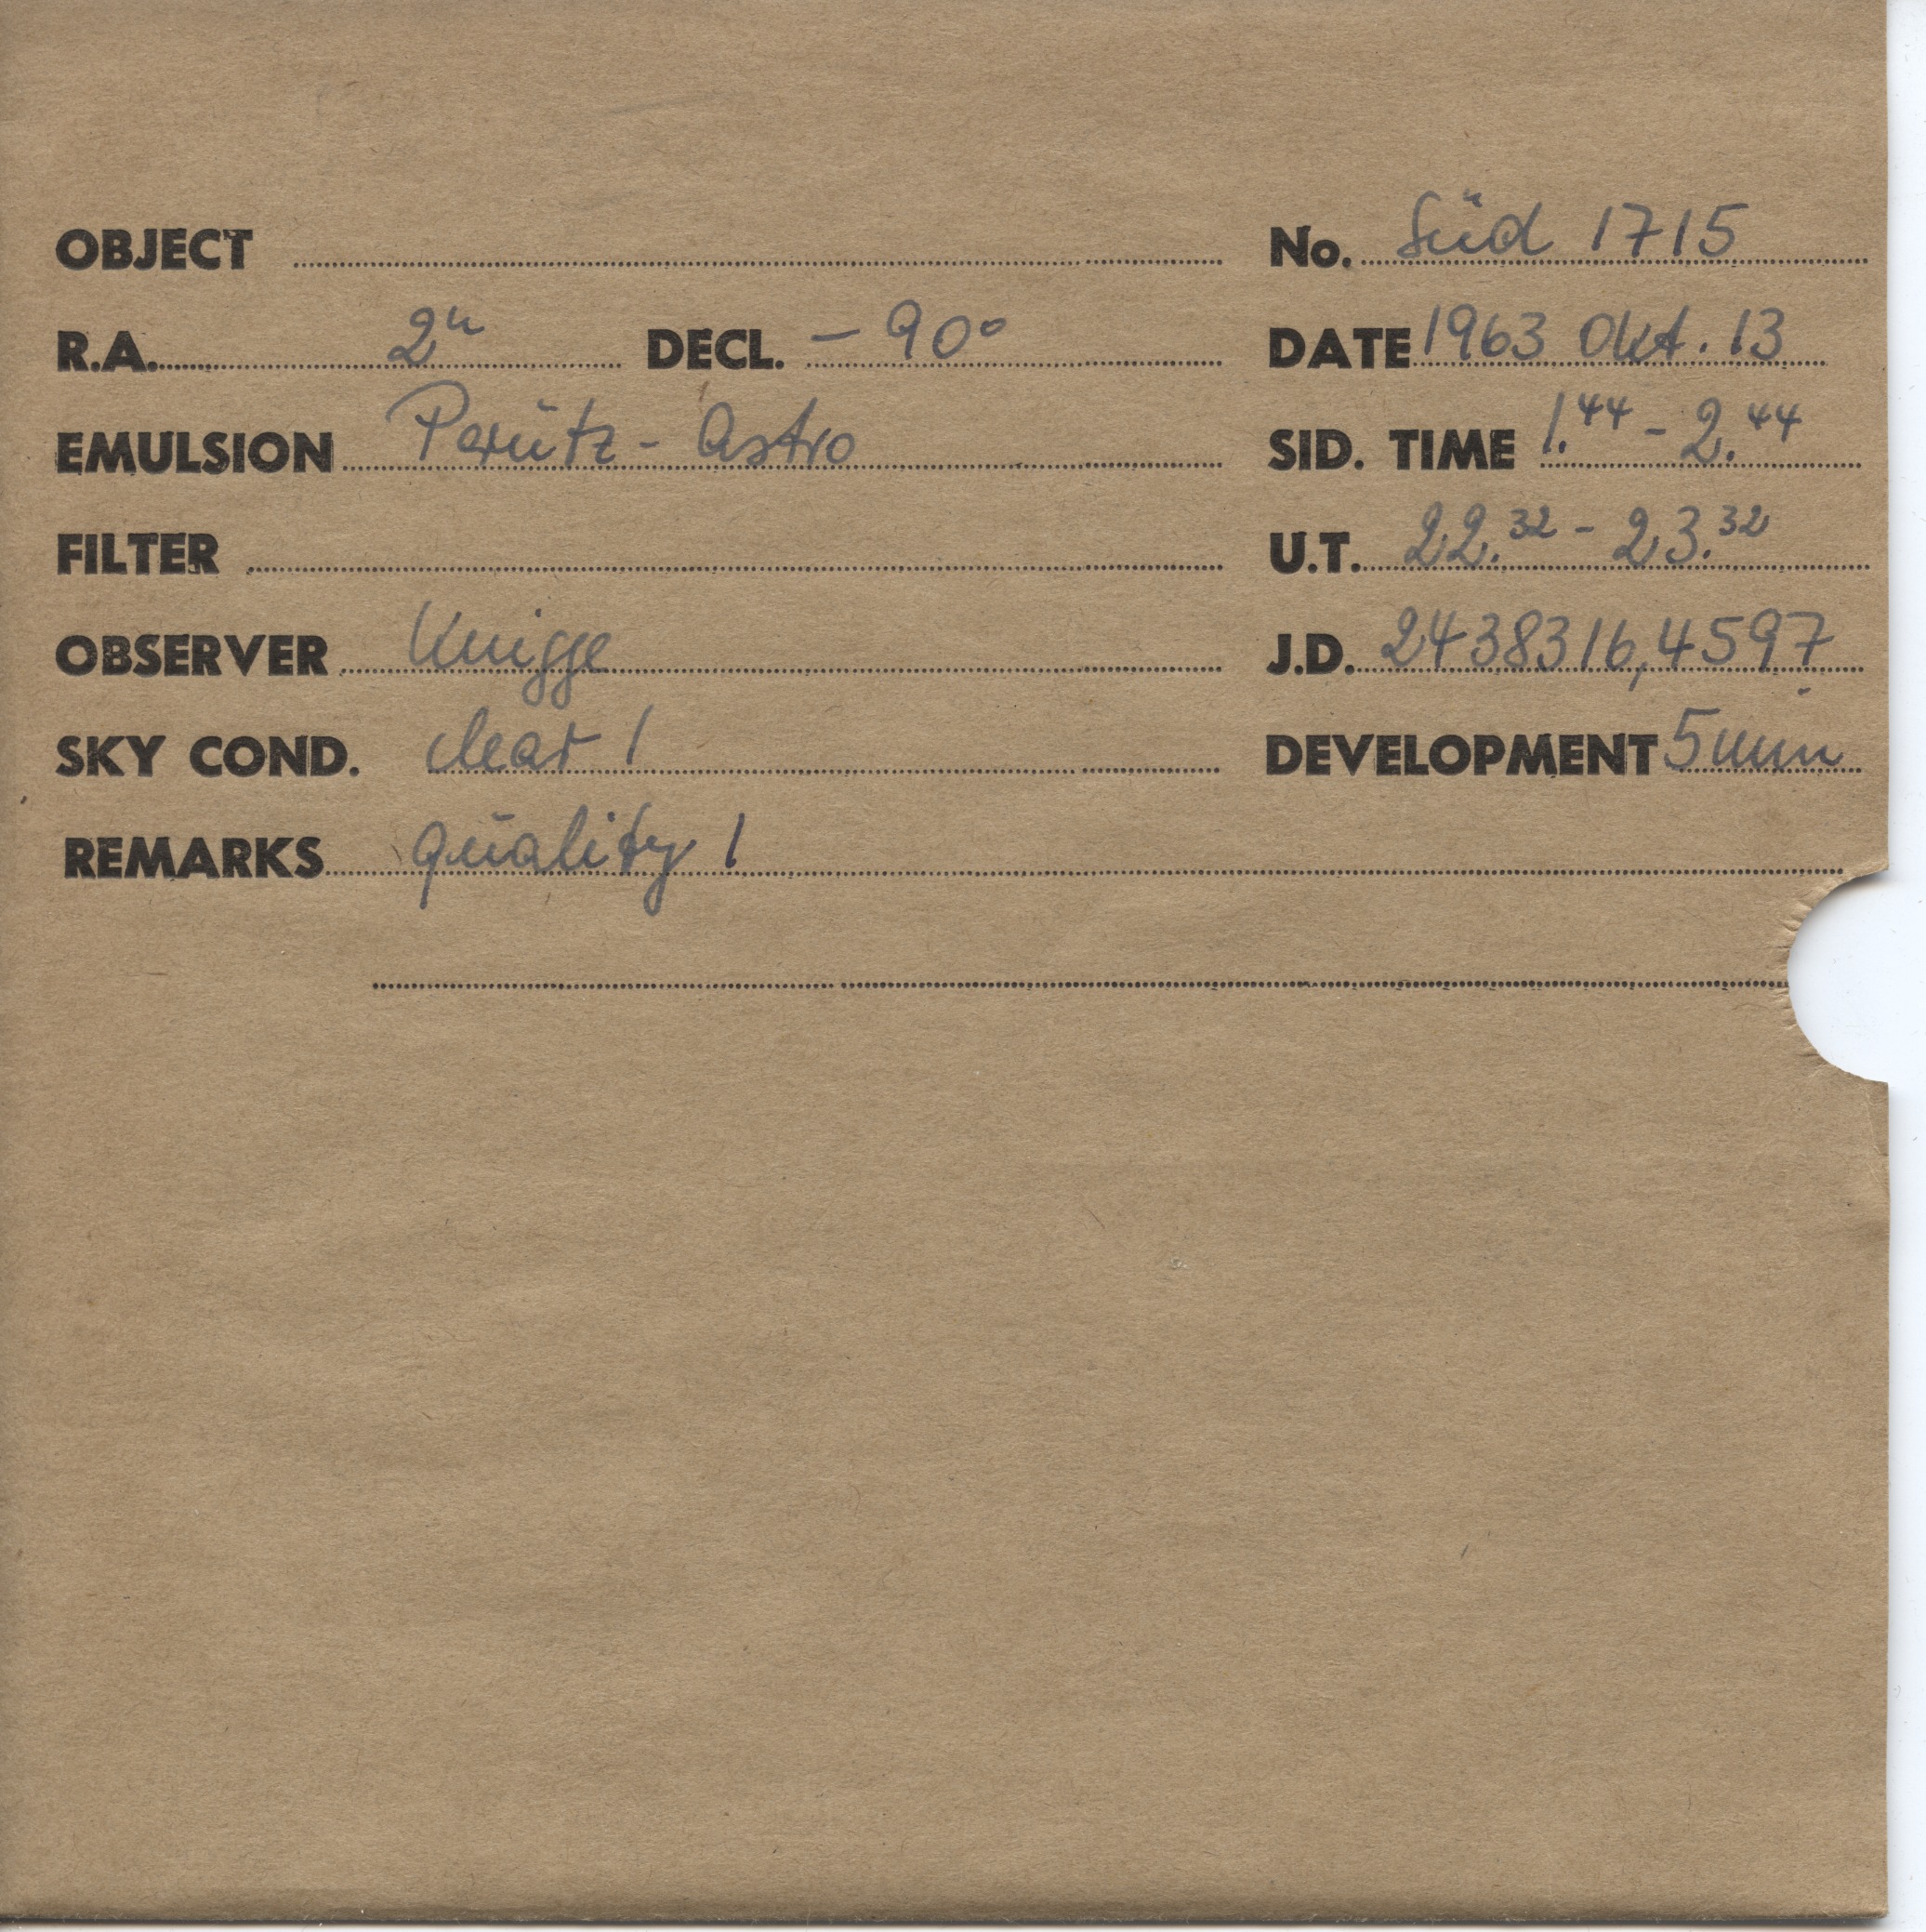 OBJECT No. Süd 1715
R.A. 2h DECL. - 90° DATE 1963 Okt. 13
EMULSION Perutz - Astro SID. TIME 1.44 - 2.44
FILTER U.T. 22.32 - 23.32
OBSERVER Knigge J.D. 2438316,4597
SKY COND. clear 1 DEVELOPMENT 5 min
REMARKS quality 1